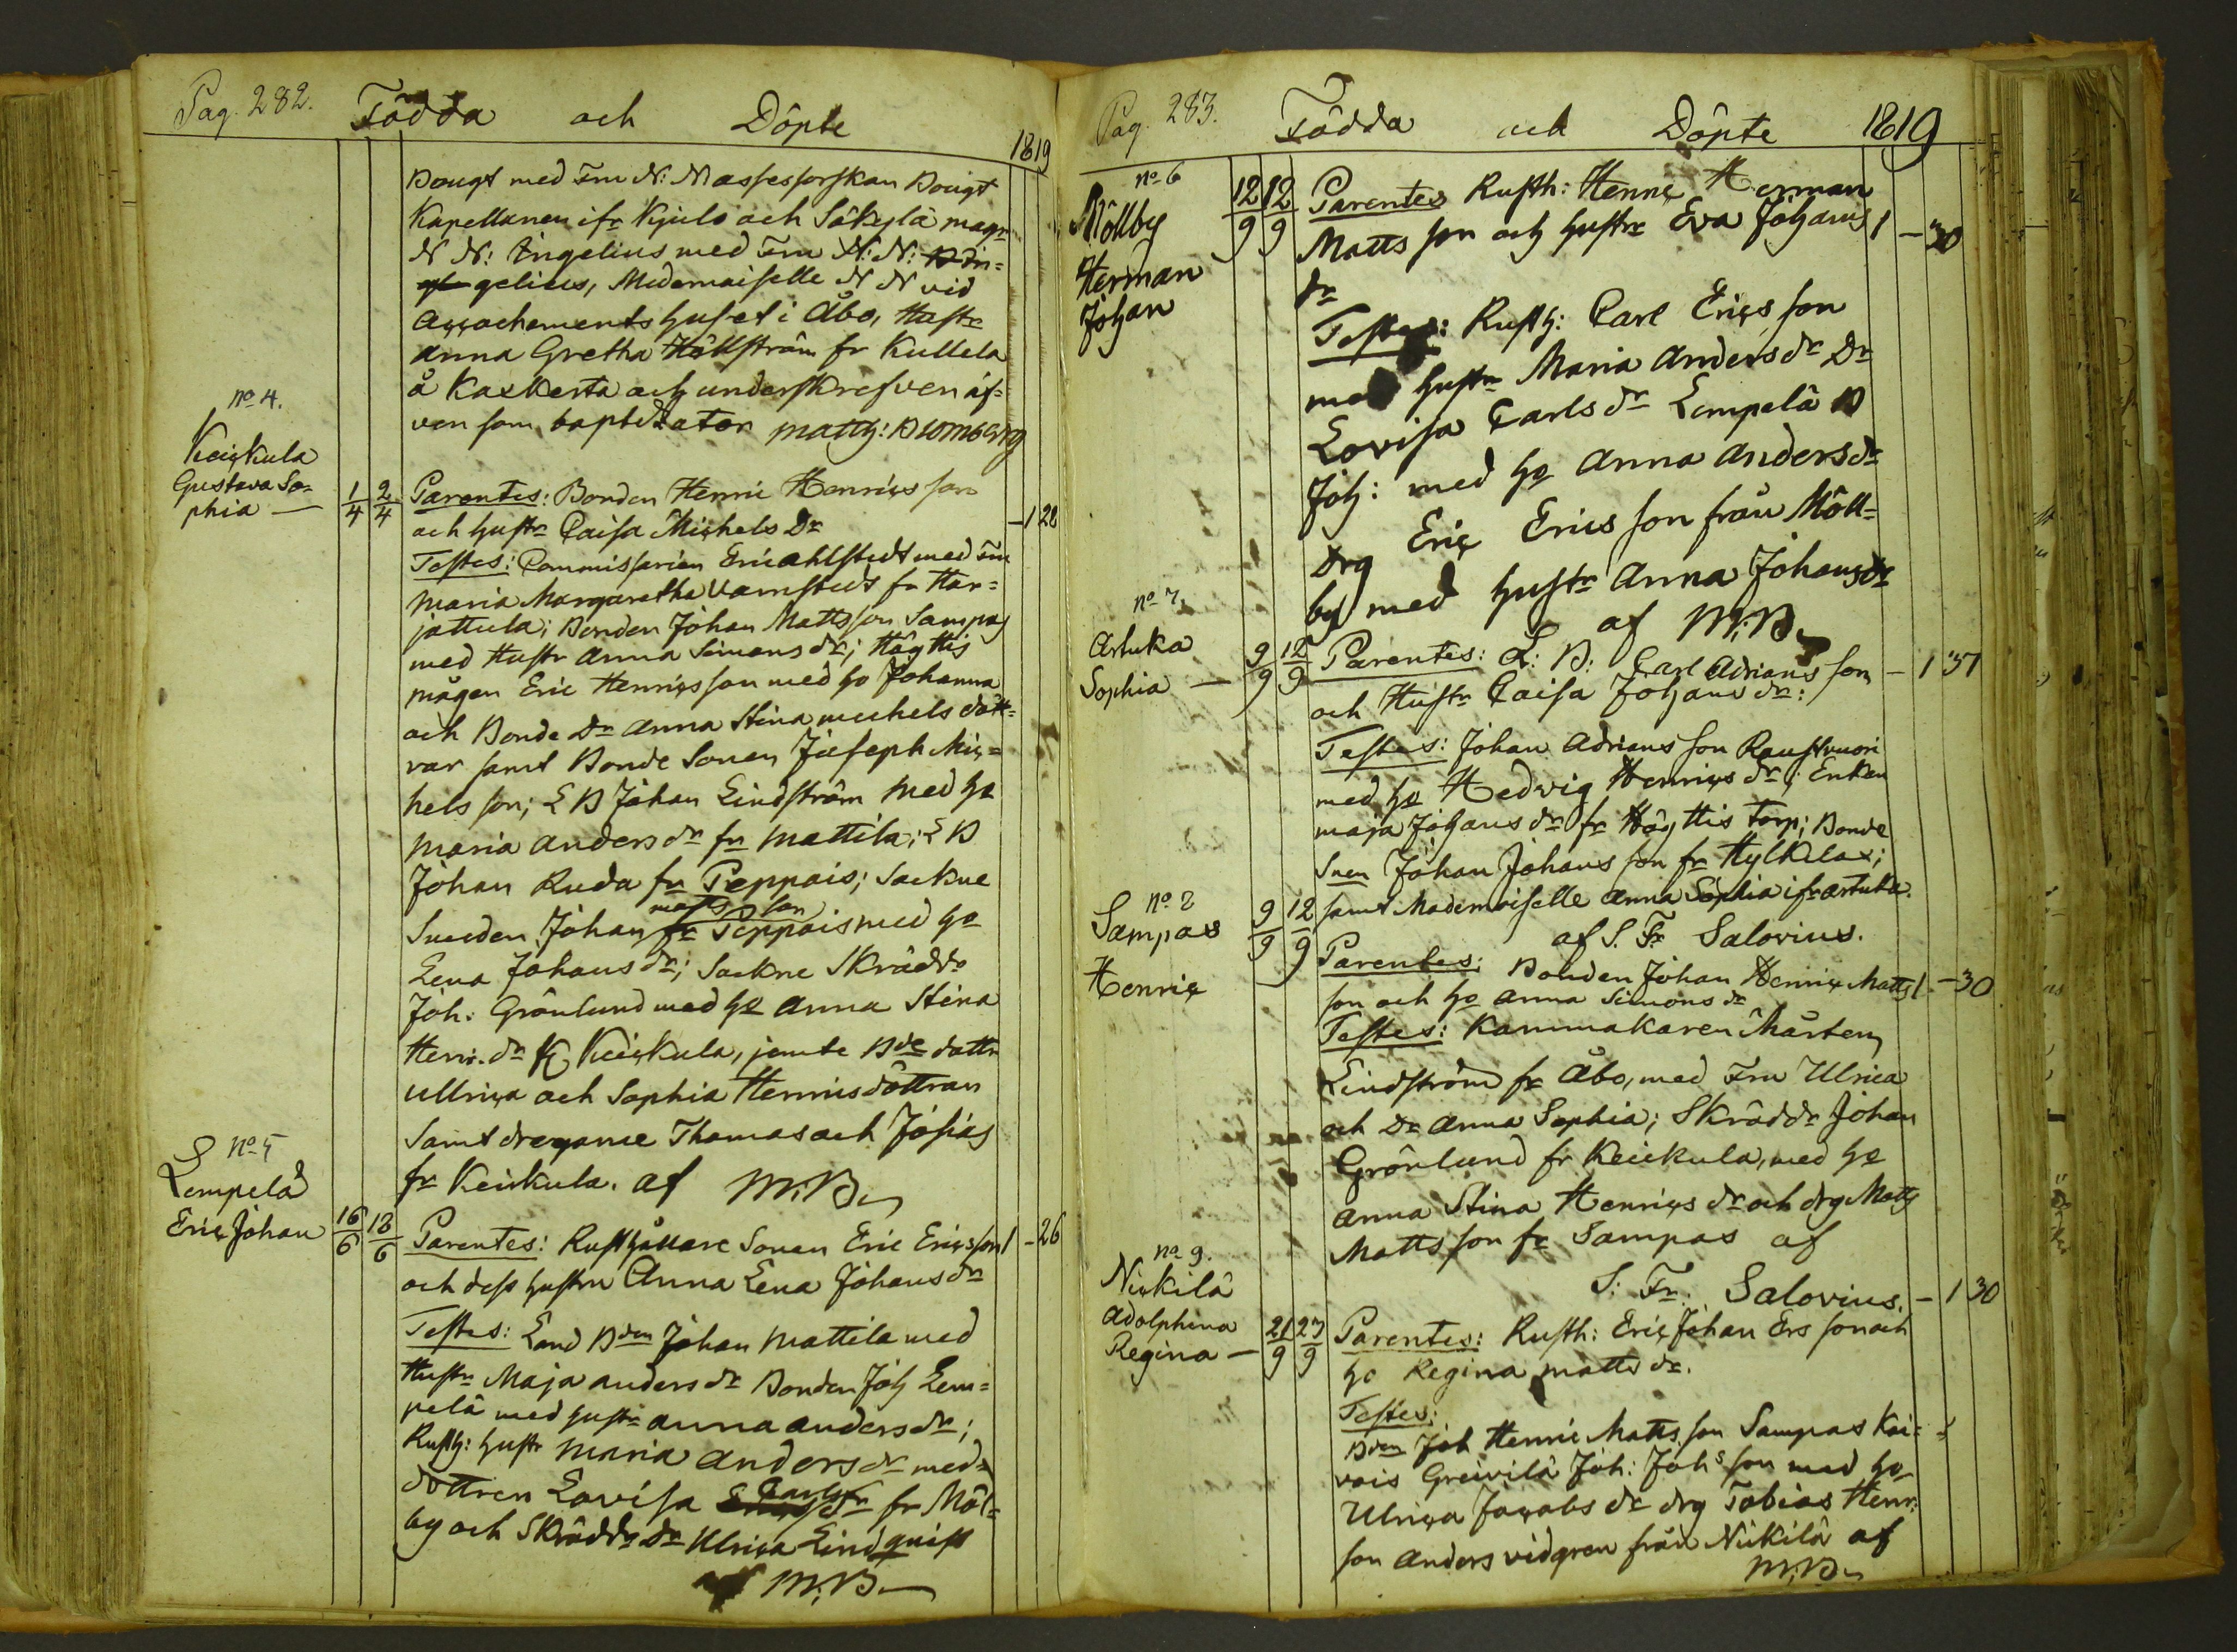 Pag. 282. Födda och Döpte 1819
Bougt med Fru N: N assessorskan Bougt
Kapellanen ifr Kjulo och Säkylä mag:r
N N: Engelius med Fru N: N:
gelius, Mademoiselle N N vid
accouchements huset i Åbo, Hustr
Anna Gretha Hällström fr Kullela
å Kaxkerta och underskrefven äf=
ven som baptizator Matth: Blomberg
No 4.
Keickula
Gustava So=
phia — 1/4 2/4
Parentes: Bonden Henric Henrics son
och hustr Caisa Michels Dr – 1 28
Testes: Commissarien Eric Ahlstedt med Fru
Maria Margaretha Vamstedt fr Har=
jattula; Bonden Johan Matts son Sampas
med Hustr Anna Simons dr; Höghtis
mågen Eric Henrics son med ho Johanna
och Bonde Dr Anna Stina michels dött=
rar samt Bonde Sonen Joseph Mic=
hels son; L B Johan Lindström med ho
Maria Anders dr fr Mattila; L B
Johan Ruda fr Peppois; Sockne
matts son
Smeden Johan fr Peppois med ho
Lena Johans dr; Sockne Skrädd:
Joh: Grönlund med ho Anna Stina
Henr. dr fr Keickula, jemte Bde dottr
Ullrica och Sophia Henrics döttrar
Samt drengarne Thomas och Josias
fr Keickula. af M: B
No 5
Lempelä
Eric Johan 16/6 18/6
Parentes: Rusthållare Sonen Eric Erics son 1 – 26
och dess hustru Anna Lena Johans dr
Testes: Land Bden Johan Mattila med
Hustr Maja Anders dr Bonden Joh Lem=
pelä med hustr Anna Anders dr;
Rusth: hustr Maria Anders dr med
Carls dr
dottren Lovisa fr Möl=
by och Skrädd: Dr Ulrica Lindquist
af M: B
Pag. 283. Födda och Döpte 1819
No 6
Möllby
Herman
Johan
12/9 12/9
Parentes Rusth: Henric Herman
Matts son och hustr Eva Johans 1 – 30
dr
Testes: Rusth: Carl Erics son
med hustr Maria Anders dr Dr
Lovisa Carls dr Lempelä B
Joh: med ho Anna Anders dr
Drg Eric Erics son från Möll=
by med hustr Anna Johans dr
af M: B
No 7.
Artuka
Sophia — 9/9 12/9
Parentes: L: B: Carl Adrians son – 1 31
och Hustr Caisa Johans dr:
Testes: Johan Adrians son Raustvuori
med ho Hedvig Henrics dr; Enkan
Maja Johans dr fr Höghtis Torp; Bonde
Snen Johan Johans son fr Hylkilax;
samt Mademoiselle Anna Sophia ifr Artukka
af S. Fr Salovius.
No 8
Sampas
Henric
9/9 12/9
Parentes: Bonden Johan Henric Matts 1 – 30
son och ho Anna Simons dr
Testes: Kammakaren Mårten
Lindström fr Åbo, med Fru Ulrica
och Dr Anna Sophia; Skrädd: Johan
Grönlund fr Keickula, med ho
Anna Stina Henrics dr och drg Matts
Matts son fr Sampas af
S: Fr: Salovius. – 1 30
No 9.
Nickilä
Adolphina
Regina — 21/9 23/9
Parentes: Rusth: Eric Johan Ers son och
ho Regina matts dr.
Testes:
Bden Joh Henric Matts son Sampas Kai=
vois Greivilä Joh: Joh s son med ho
Ulrica Jacobs dr drg Tobias Henr:
son Anders vidgren från Nickilä af
M: B